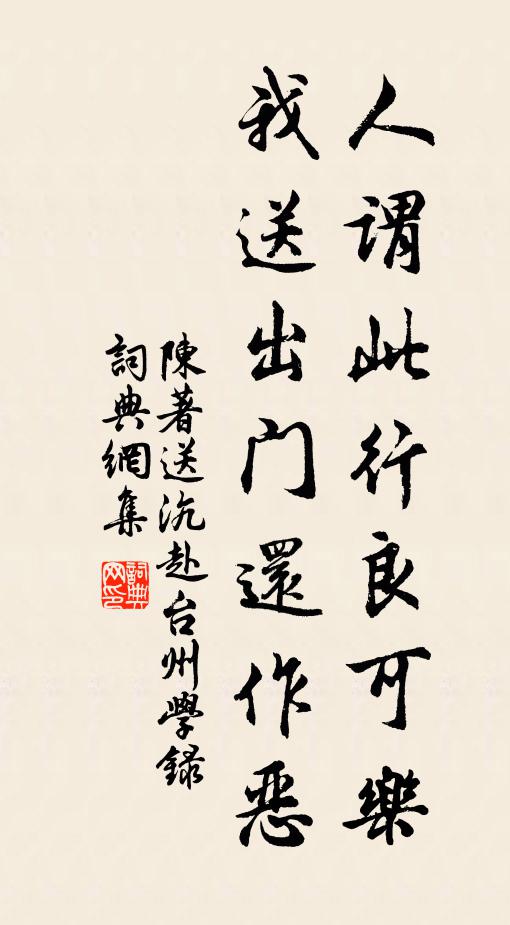 人謂此行良可樂
我送出門還作惡
陳著送沆赴台州學錄
詞典網集
詞典网印